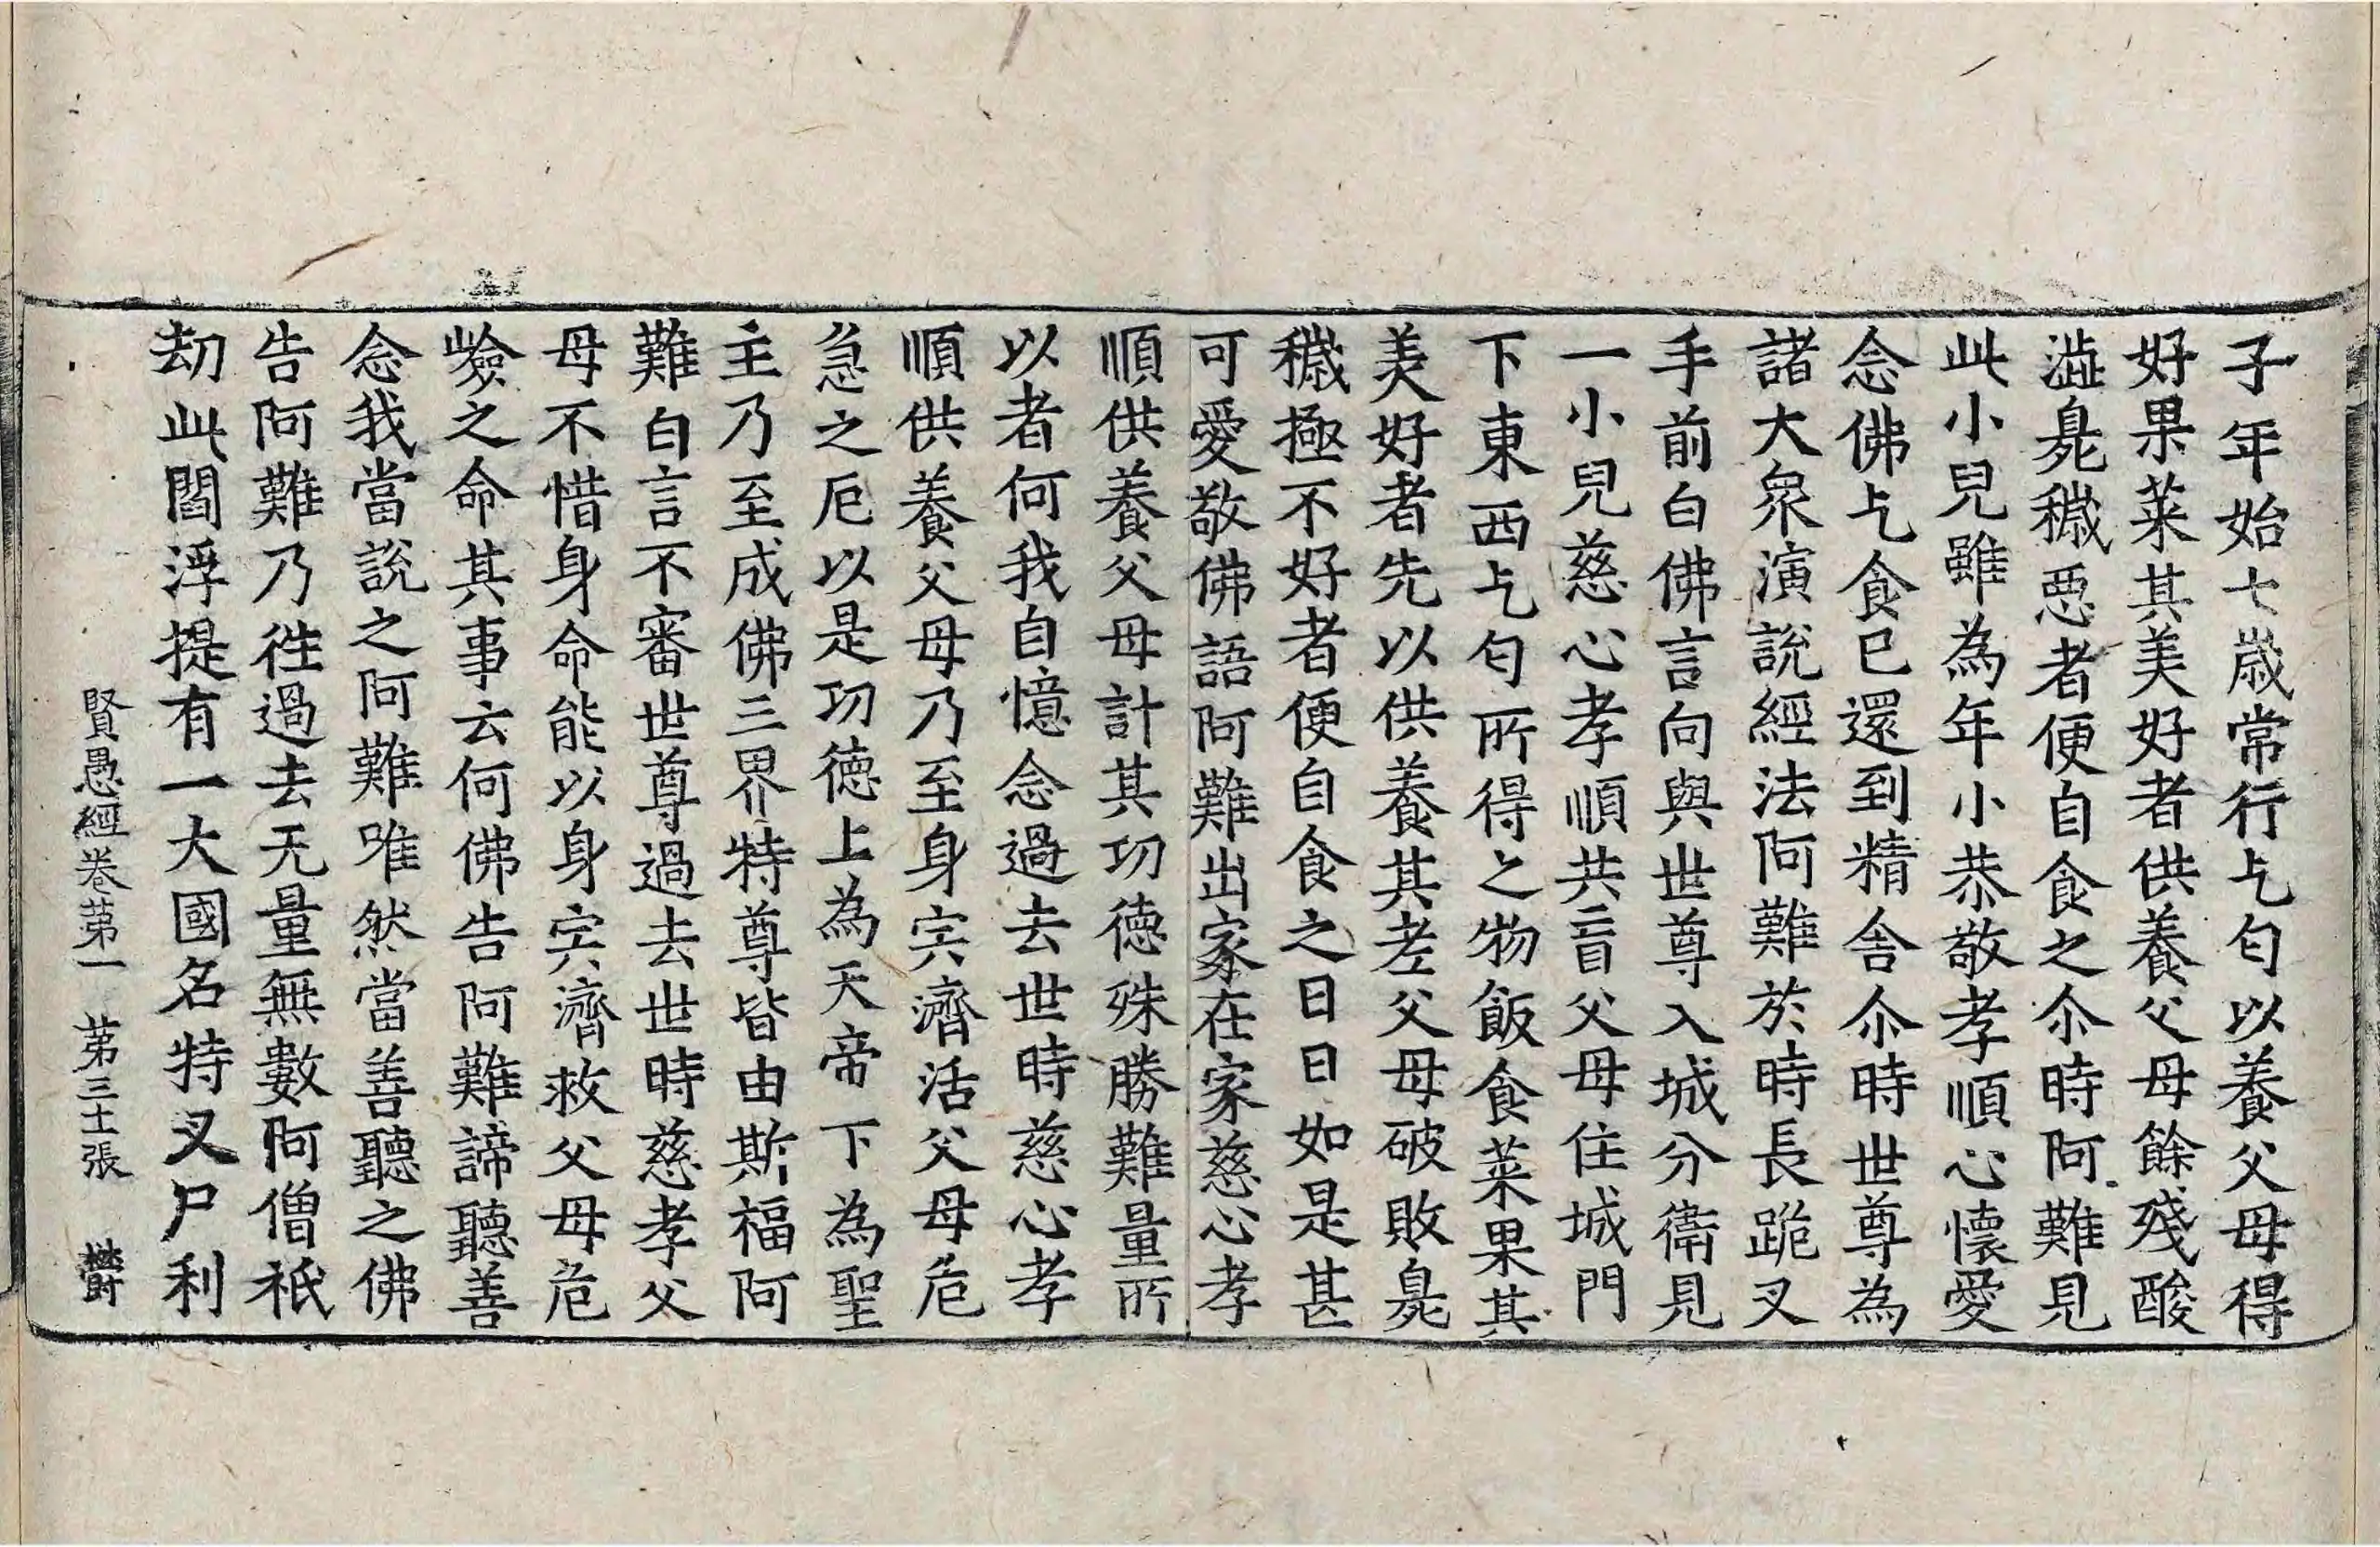 子年始七歲常行乞匂以養父母得
好果菜其美好者供養父母餘殘酸
澁臰穢惡者便自食之尒時阿難見
此小兒雖為年小恭敬孝順心懷愛
念佛乞食已還到精舍尒時世尊為
諸大衆演說經法阿難於時長跪叉
手前白佛言向與世尊入城分衛見
一小兒慈心孝順共盲父母住城門
下東西乞匂所得之物飯食菜果其
美好者先以供養其老父母破敗臰
穢極不好者便自食之日日如是甚
可愛敬佛語阿難出家在家慈心孝
順供養父母計其功德殊勝難量所
以者何我自憶念過去世時慈心孝
順供養父母乃至身宍濟活父母危
急之厄以是功德上為天帝下為聖
主乃至成佛三界特尊皆由斯福阿
難白言不審世尊過去世時慈孝父
母不惜身命能以身宍濟救父母危
嶮之命其事云何佛告阿難諦聽善
念我當說之阿難唯然當善聽之佛
告阿難乃徃過去无量無數阿僧祇
劫此閻浮提有一大國名特叉尸利
賢愚經卷苐一　苐三十張　欝